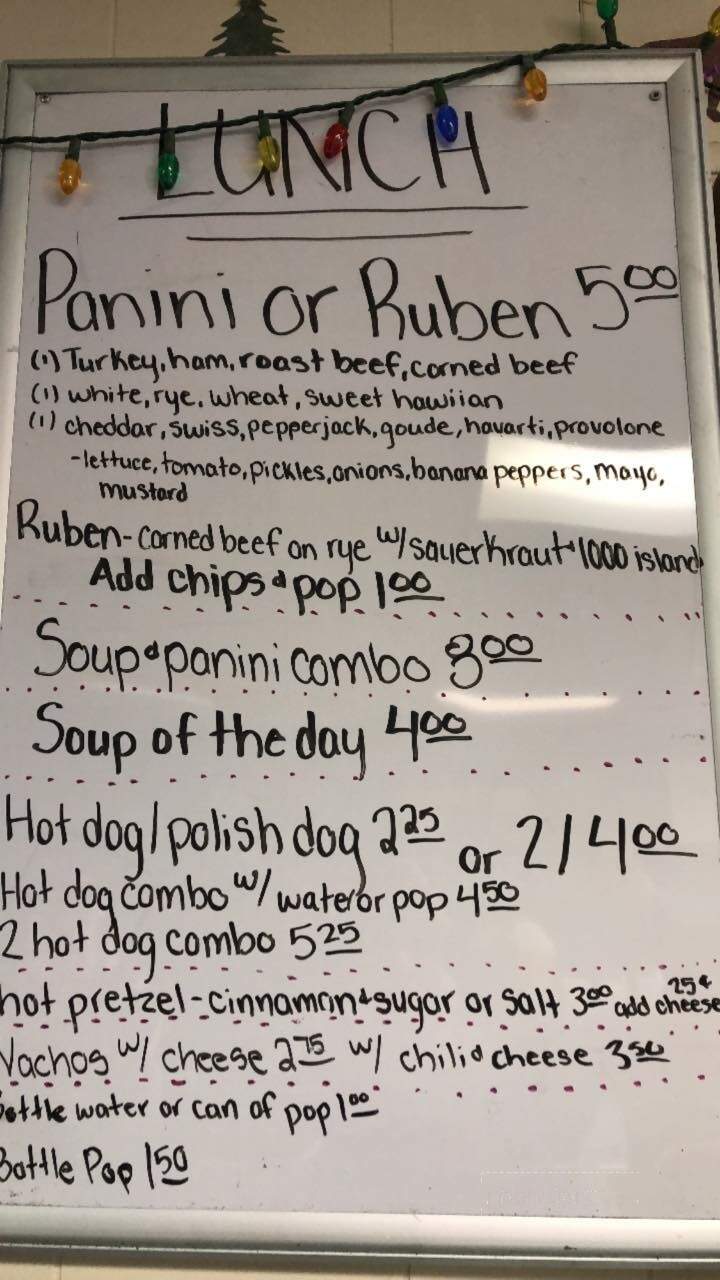 LUNCH
Panini or Ruben 5.00
(1) Turkey, ham, roast beef, corned beef
(1) white, rye, wheat, sweet hawiian
(1) cheddar, swiss, pepperjack, goude, havarti, provolone
-lettuce, tomato, pickles, onions, banana peppers, mayo,
mustard
Ruben-corned beef on rye w/sauerkraut & 1000 island
Add chips & pop 1 00
Soup & panini combo 8 00
Soup of the day 4 00
Hot dog/polish dog 2 25 or 2/4 00
Hot dog combo w/ water or pop 4 50
2 hot dog combo 5 25
hot pretzel-cinnamon & sugar or salt 3 00 add cheese 25¢
Nachos w/ cheese 2 75 w/ chili & cheese 3 50
Bottle water or can of pop 1 00
Bottle Pop 1 50